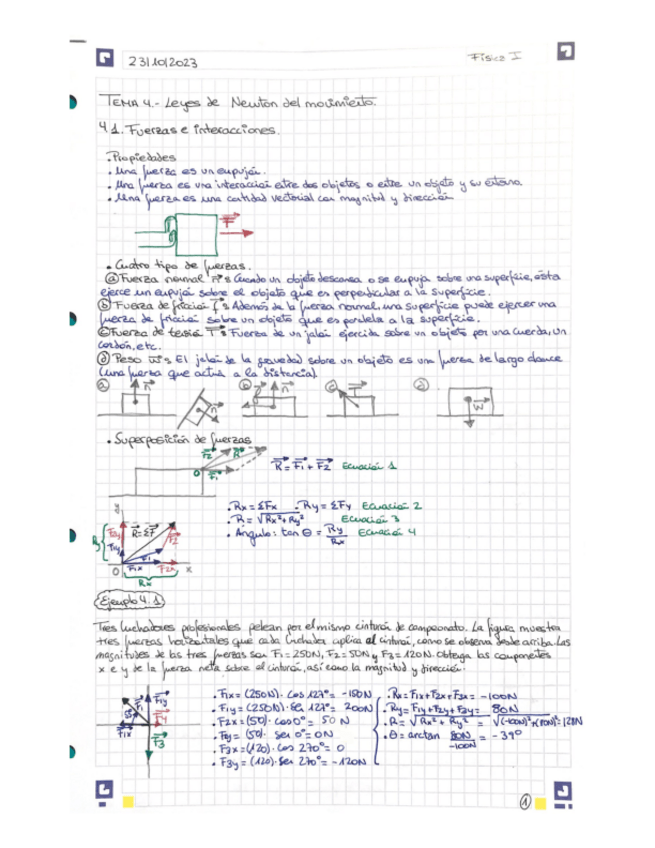 23/10/2023
Física I
TEMA 4.- Leyes de Newton del movimiento.
4.1. Fuerzas e interacciones.
• Propiedades
• Una fuerza es un empujón.
• Una fuerza es una interacción entre dos objetos o entre un objeto y su entorno.
• Una fuerza es una cantidad vectorial con magnitud y dirección
F
• Cuatro tipo de fuerzas.
ⓐ Fuerza normal n: Cuando un objeto descansa o se empuja sobre una superficie, ésta
ejerce un empujón sobre el objeto que es perpendicular a la superficie.
ⓑ Fuerza de fricción f: Además de la fuerza normal, una superficie puede ejercer una
fuerza de fricción sobre un objeto que es paralela a la superficie.
ⓒ Fuerza de tensión T: Fuerza de un jalón ejercida sobre un objeto por una cuerda, un
cordón, etc.
ⓓ Peso w: El jalón de la gravedad sobre un objeto es una fuerza de largo alcance
(una fuerza que actúa a la distancia).
ⓐ n n ⓑ n ⓒ T ⓓ w
• Superposición de fuerzas
F2 R
O F1
R = F1 + F2 Ecuación 1
• Rx = ΣFx • Ry = ΣFy Ecuación 2
• R = √Rx²+Ry² Ecuación 3
• Ángulo: tan θ = Ry/Rx Ecuación 4
y
Ry F2y R=ΣF F2
F1y F1
O F1x F2x x
Rx
Ejemplo 4.1
Tres luchadores profesionales pelean por el mismo cinturón de campeonato. La figura muestra
tres fuerzas horizontales que cada luchador aplica al cinturón, como se observa desde arriba. Las
magnitudes de las tres fuerzas son F1 = 250N, F2 = 50N y F2 = 120N. Obtenga las componentes
x e y de la fuerza neta sobre el cinturón, así como la magnitud y dirección.
F1 F1y
F1x
F3
• F1x = (250N) · cos 127° = -150N
• F1y = (250N) · sen 127° = 200N
• F2x = (50) · cos 0° = 50 N
• F2y = (50) · sen 0° = 0N
• F3x = (120) · cos 270° = 0
• F3y = (120) · sen 270° = -120N
• Rx = F1x + F2x + F3x = -100N
• Ry = F1y + F2y + F3y = 80N
• R = √Rx² + Ry² = √(-100N)²+(80N)² = 128N
• θ = arctan 80N/-100N = -39°
1